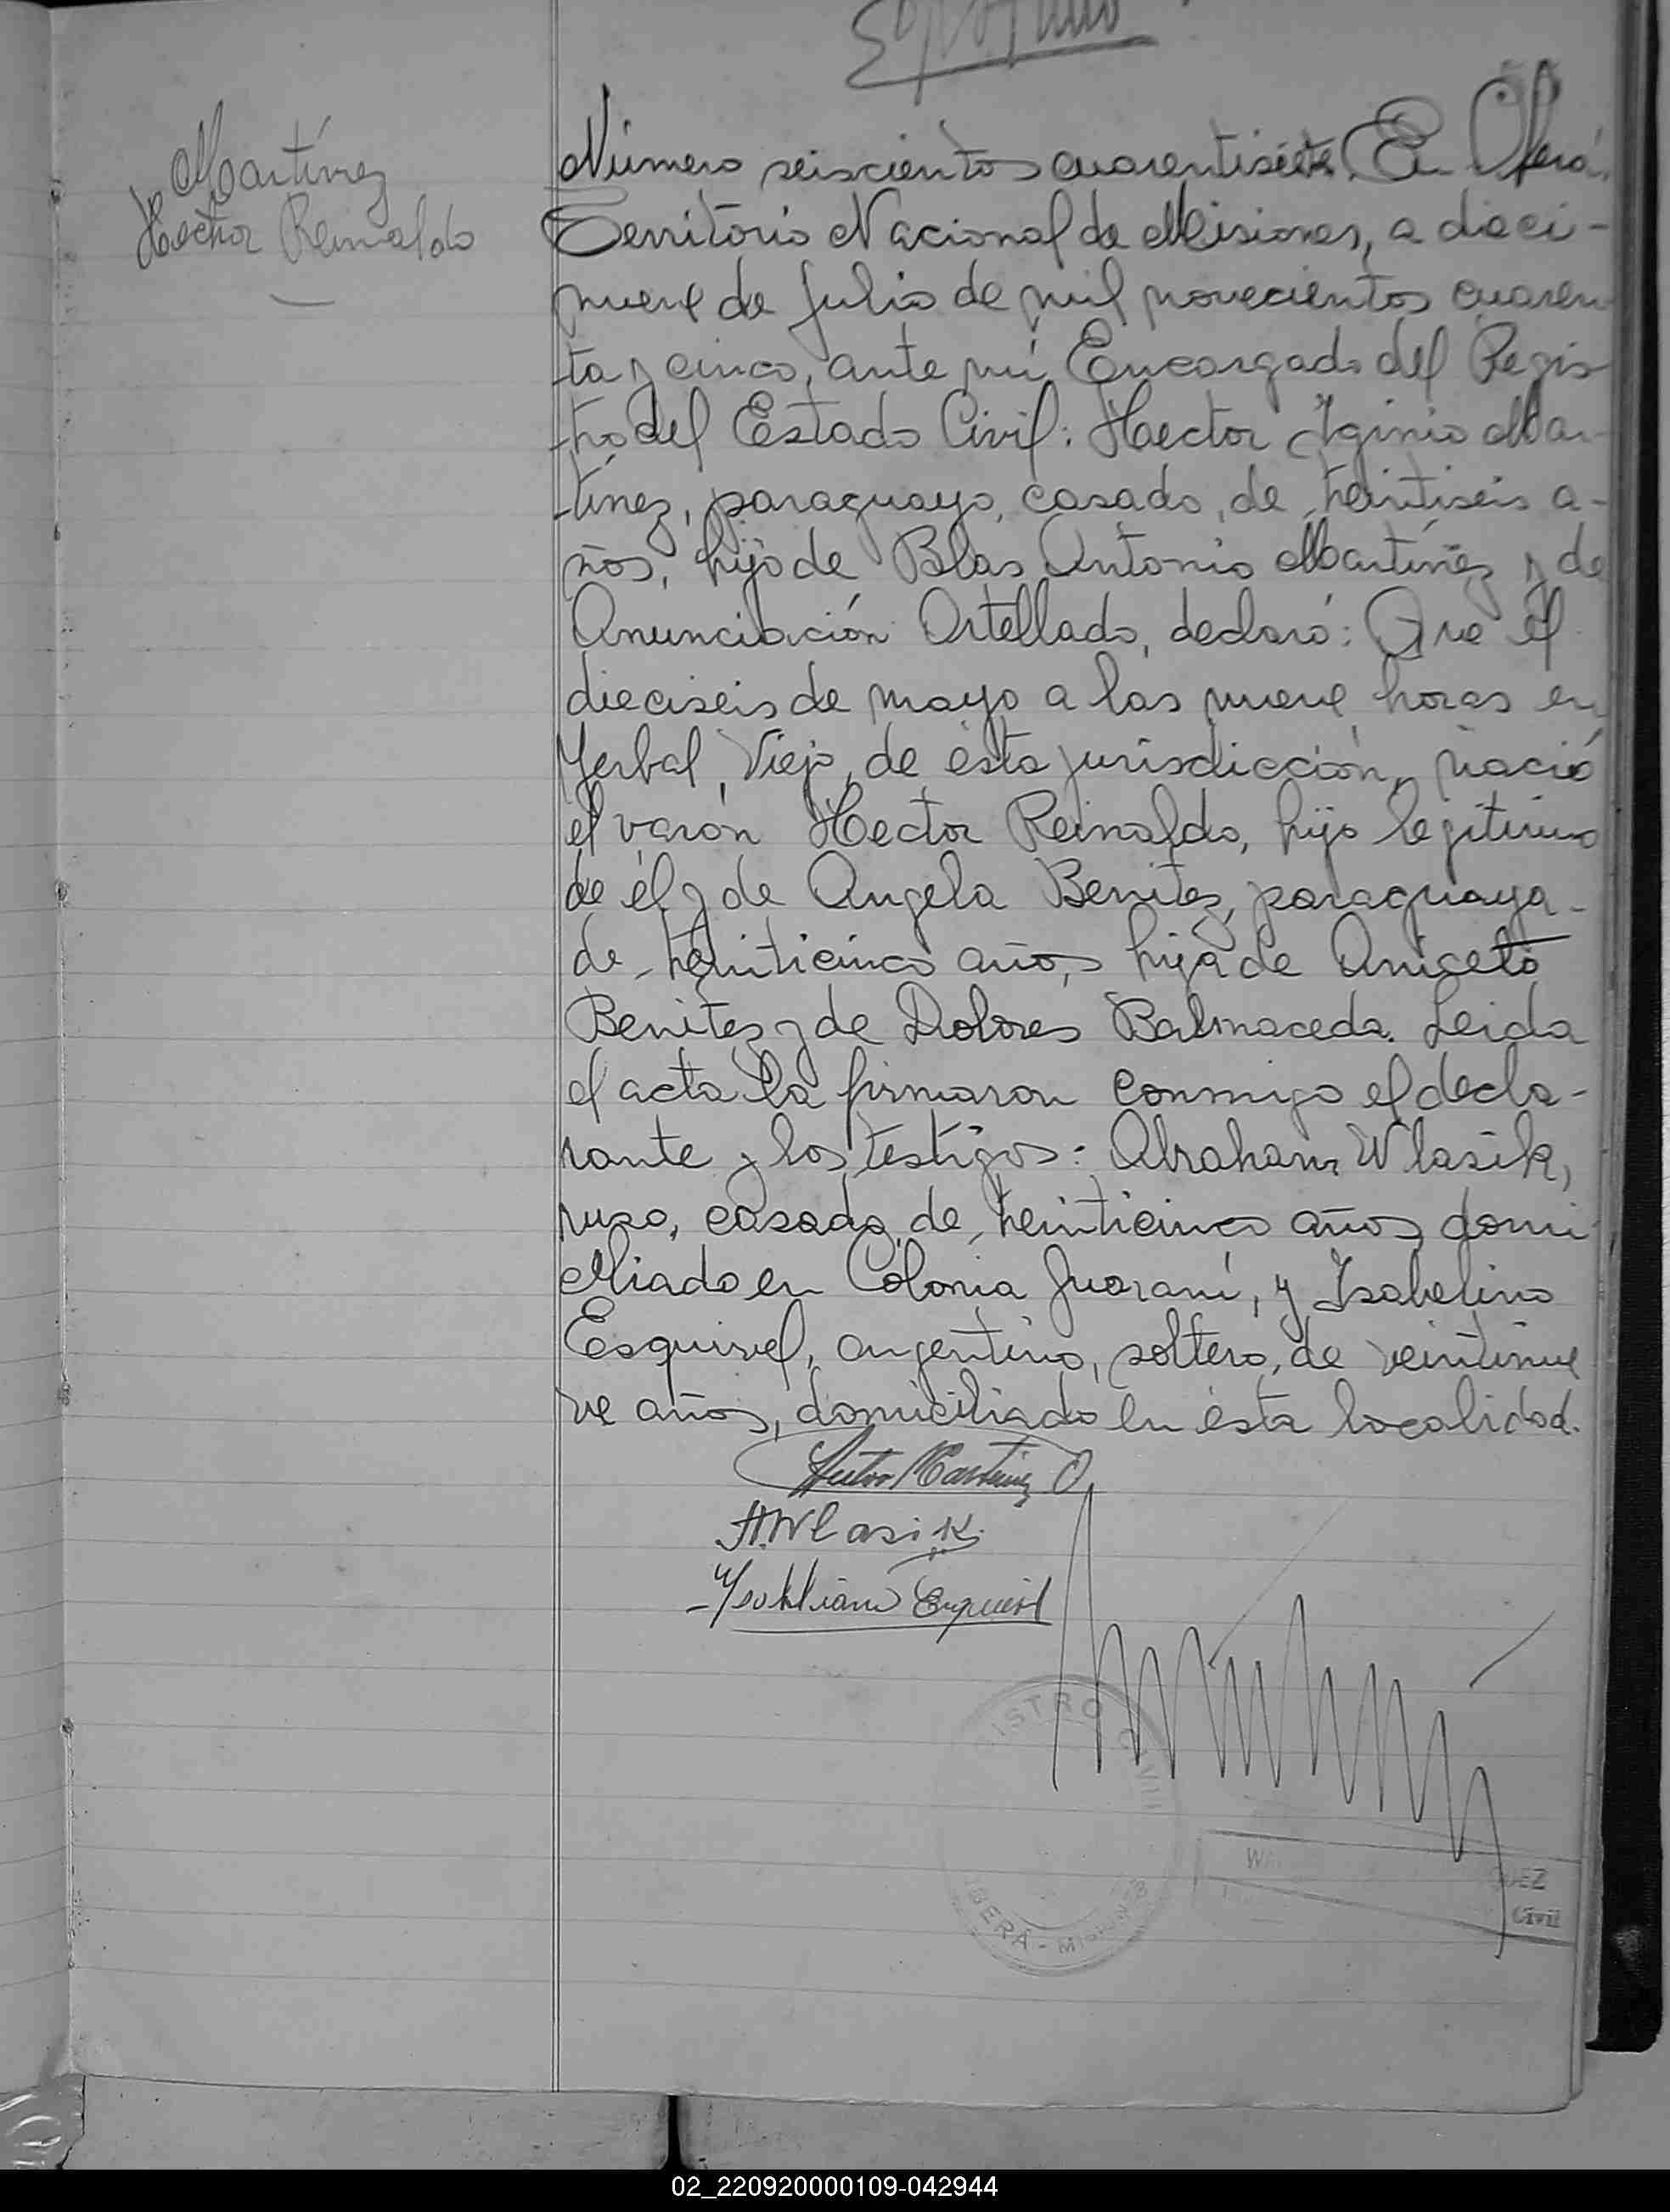 Martínez
Hector Reinaldo
Número seiscientos cuarentisiete. En Oberá,
Territorio Nacional de Misiones, a dieci-
nueve de Julio de mil novecientos cuaren
ta y cinco, ante mí Encargado del Regis
tro del Estado Civil: Hector Iginio Mar-
tínez, paraguayo, casado, de treintiseis a-
ños, hijo de Blas Antonio Martínez y de
Anunciación Ortellado, declaró: Que el
dieciseis de mayo a las nueve horas en
Yerbal Viejo, de esta jurisdicción, nació
el varón Hector Reinaldo, hijo legitimo
de él y de Angela Benitez, paraguaya
de treinticinco años, hija de Aniceto
Benitez y de Dolores Balmaceda. Leida
el acta la firmaron conmigo el decla-
rante y los testigos: Abraham Wlasik,
ruso, casado, de treinticinco años, domi
ciliado en Colonia Guaraní, y Isabelino
Esquivel, argentino, soltero, de veintinue
ve años, domiciliado en ésta localidad.
Hector Martinez O.
A. Wlasik
Esquivel
ISTRO CIVIL
BERÁ - MISIONES
UEZ
Civil
02_220920000109-042944